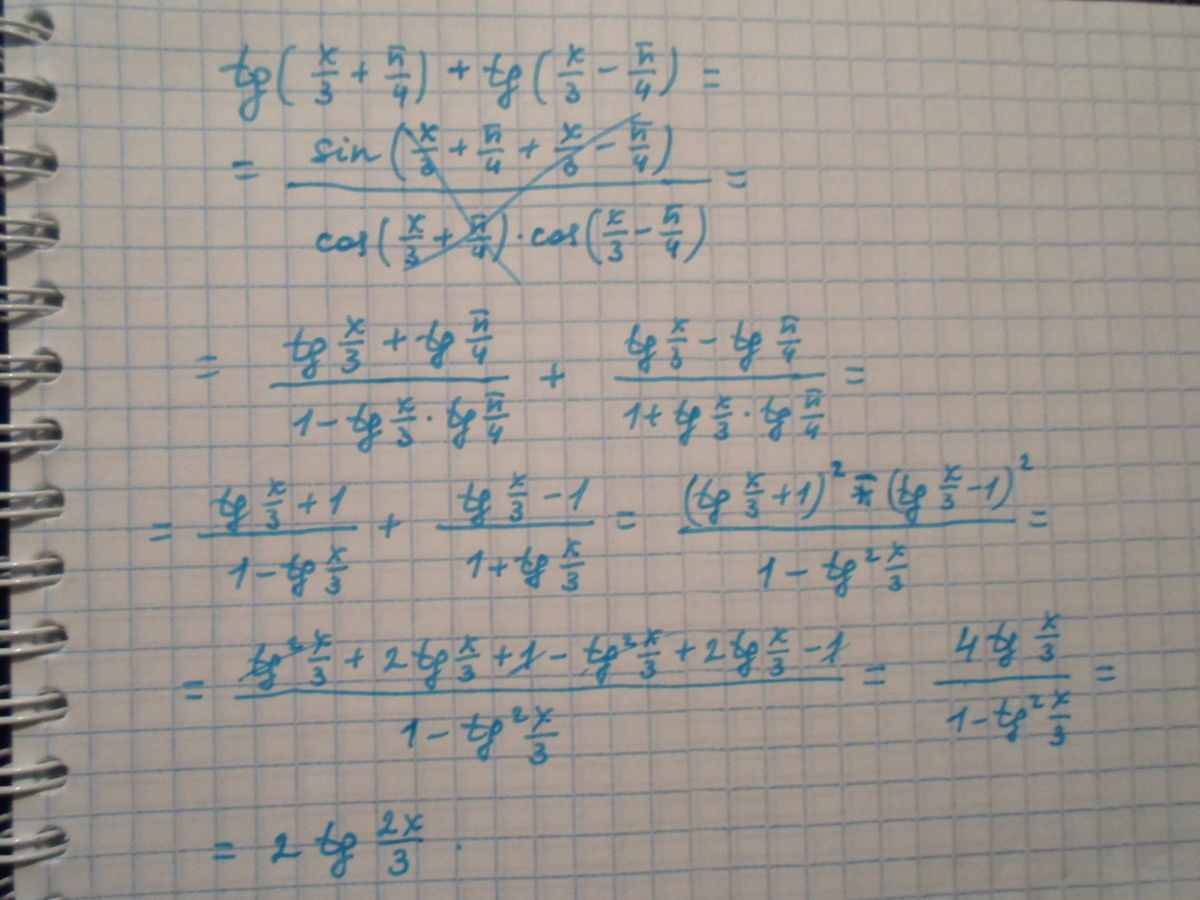 tg(x/3 + π/4) + tg(x/3 − π/4) =
= sin(x/3 + π/4 + x/3 − π/4) / cos(x/3 + π/4) · cos(x/3 − π/4) =
= (tg x/3 + tg π/4) / (1 − tg x/3 · tg π/4) + (tg x/3 − tg π/4) / (1 + tg x/3 · tg π/4) =
= (tg x/3 + 1) / (1 − tg x/3) + (tg x/3 − 1) / (1 + tg x/3) = ((tg x/3 + 1)² − (tg x/3 − 1)²) / (1 − tg² x/3) =
= (tg² x/3 + 2 tg x/3 + 1 − tg² x/3 + 2 tg x/3 − 1) / (1 − tg² x/3) = (4 tg x/3) / (1 − tg² x/3) =
= 2 tg 2x/3 .